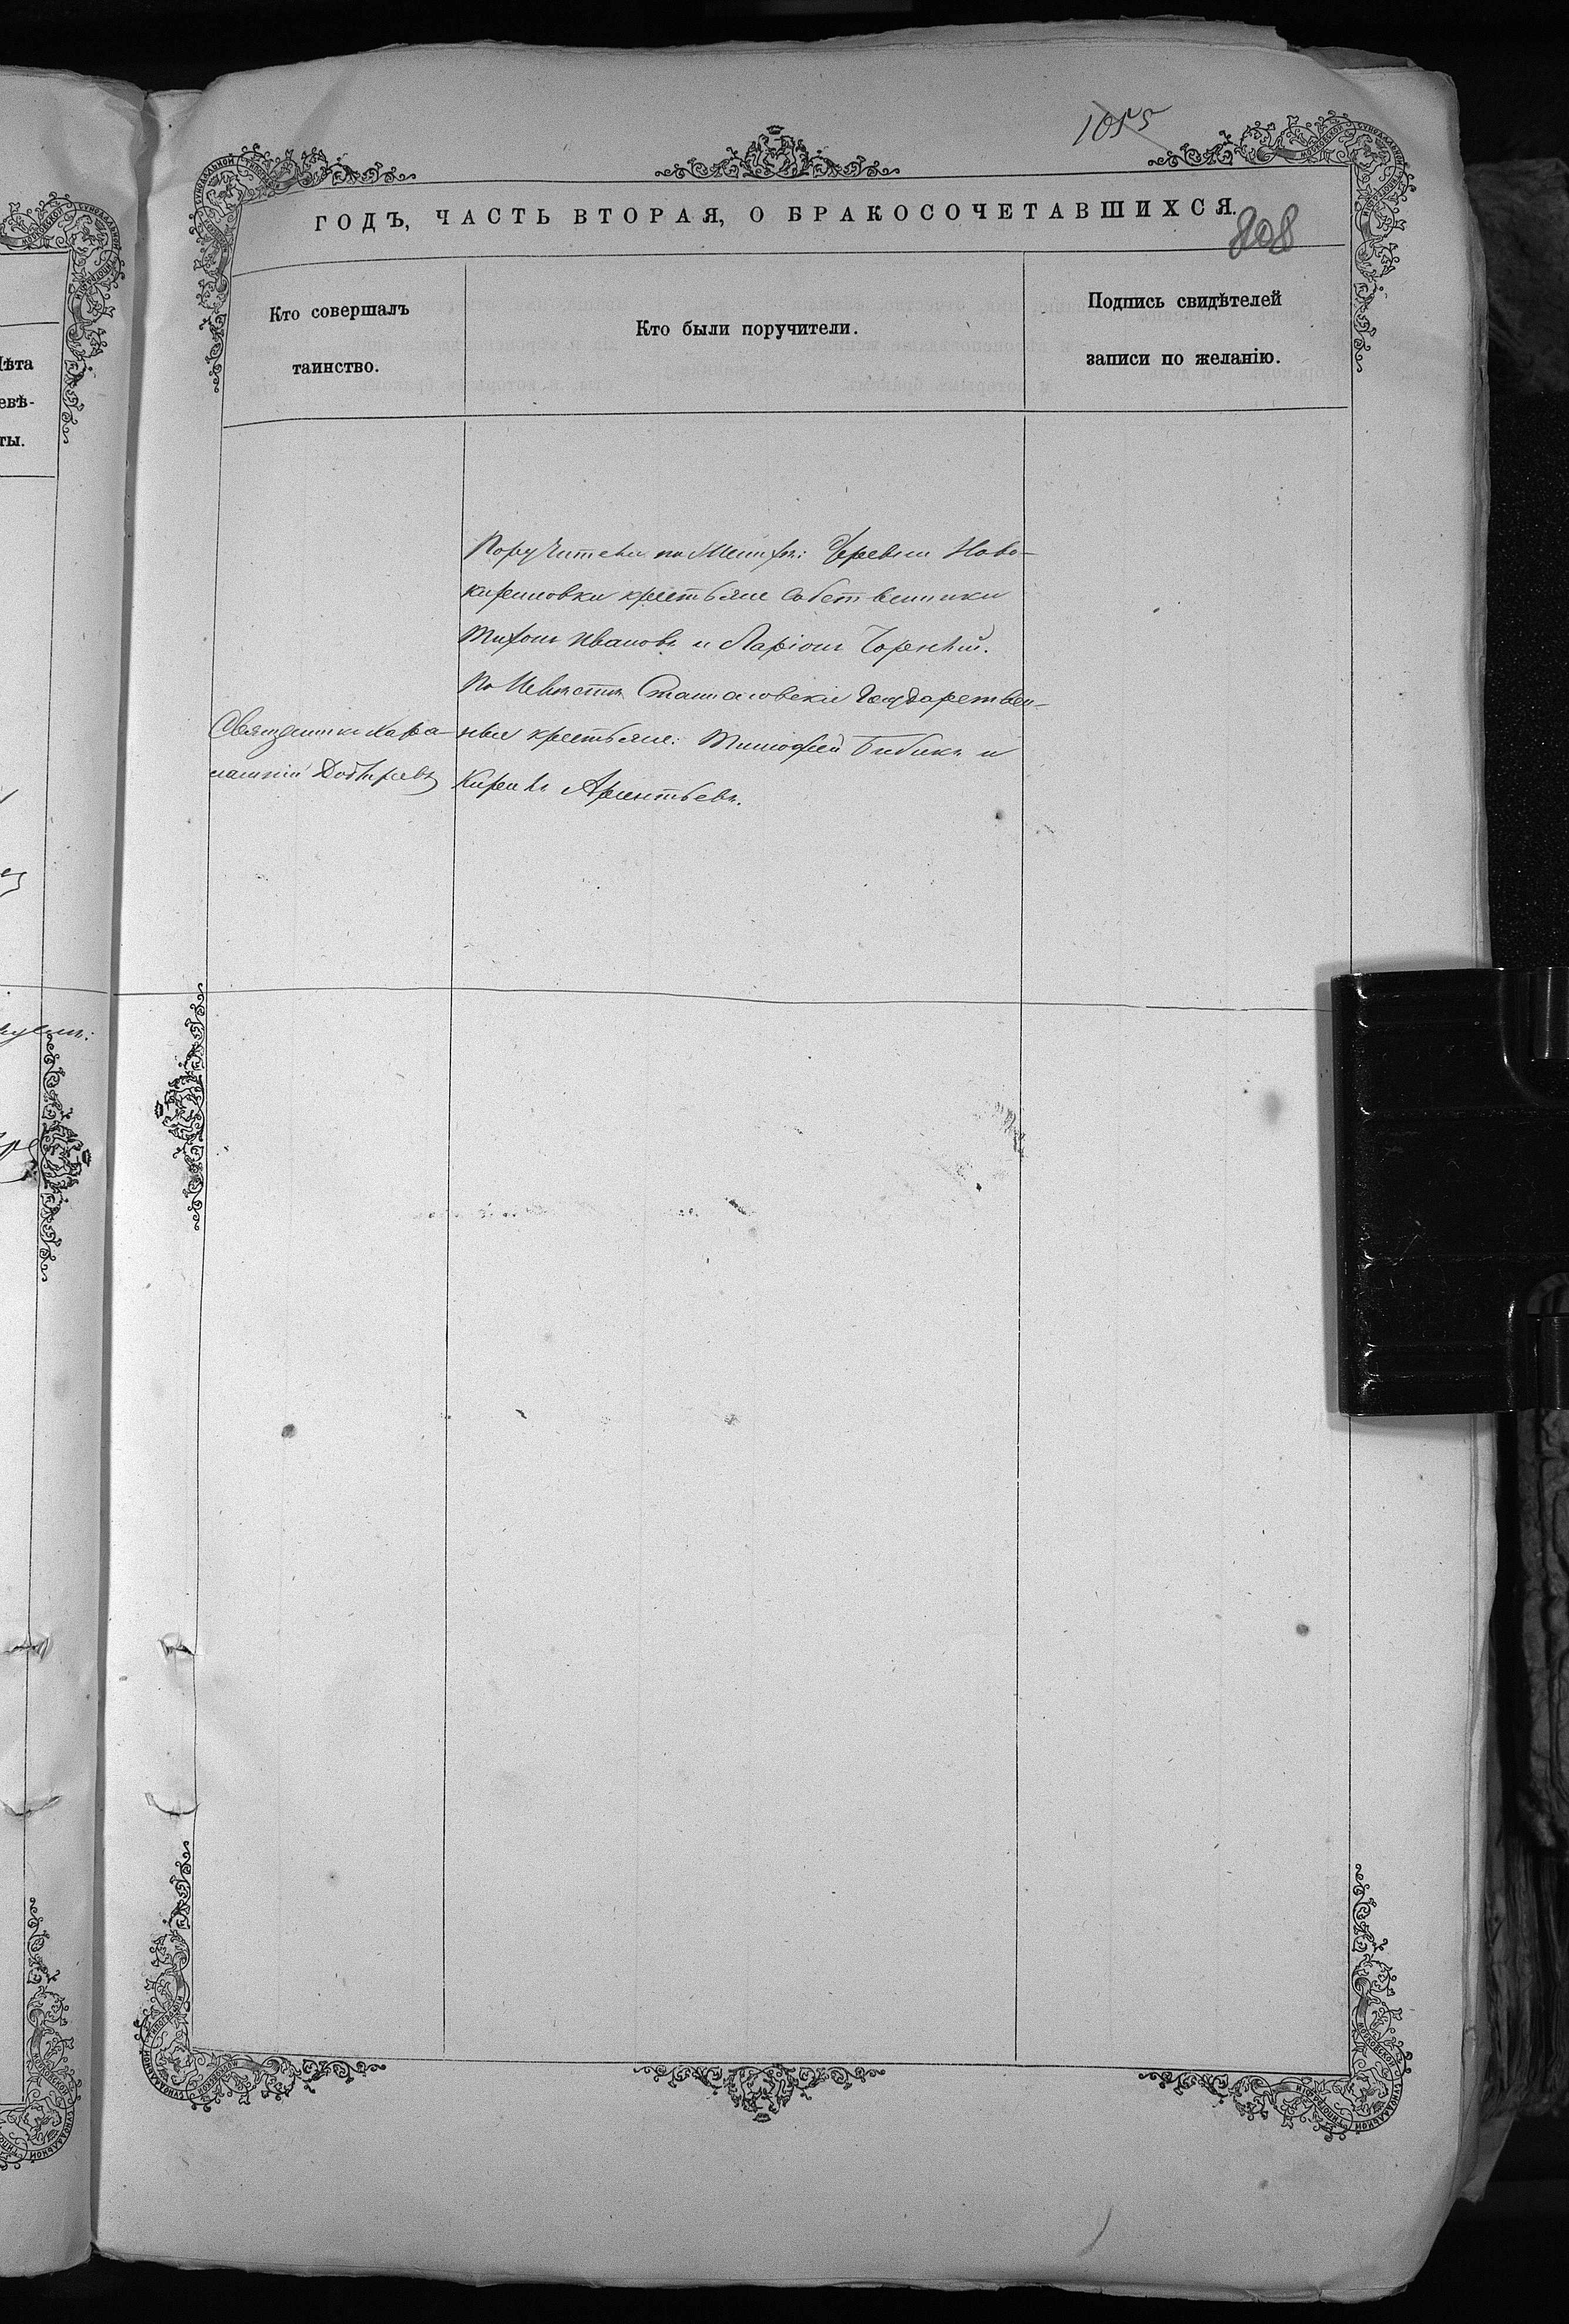 1055
ГОДЪ, ЧАСТЬ ВТОРАЯ, О БРАКОСОЧЕТАВШИХСЯ.
808
Кто совершалъ
таинство.
Кто были поручители.
Подпись свидѣтелей
записи по желанію.
Лѣта
евѣ-
ты.
Поручители по Женихѣ: Деревни Ново-
кириловки крестьяне собственники
Тихонъ Ивановъ и Ларіонъ
По Невѣстѣ Государствен-
ные крестьяне: Тимофей Бибикъ и
Кирилъ
Священникъ Хара-
лампій